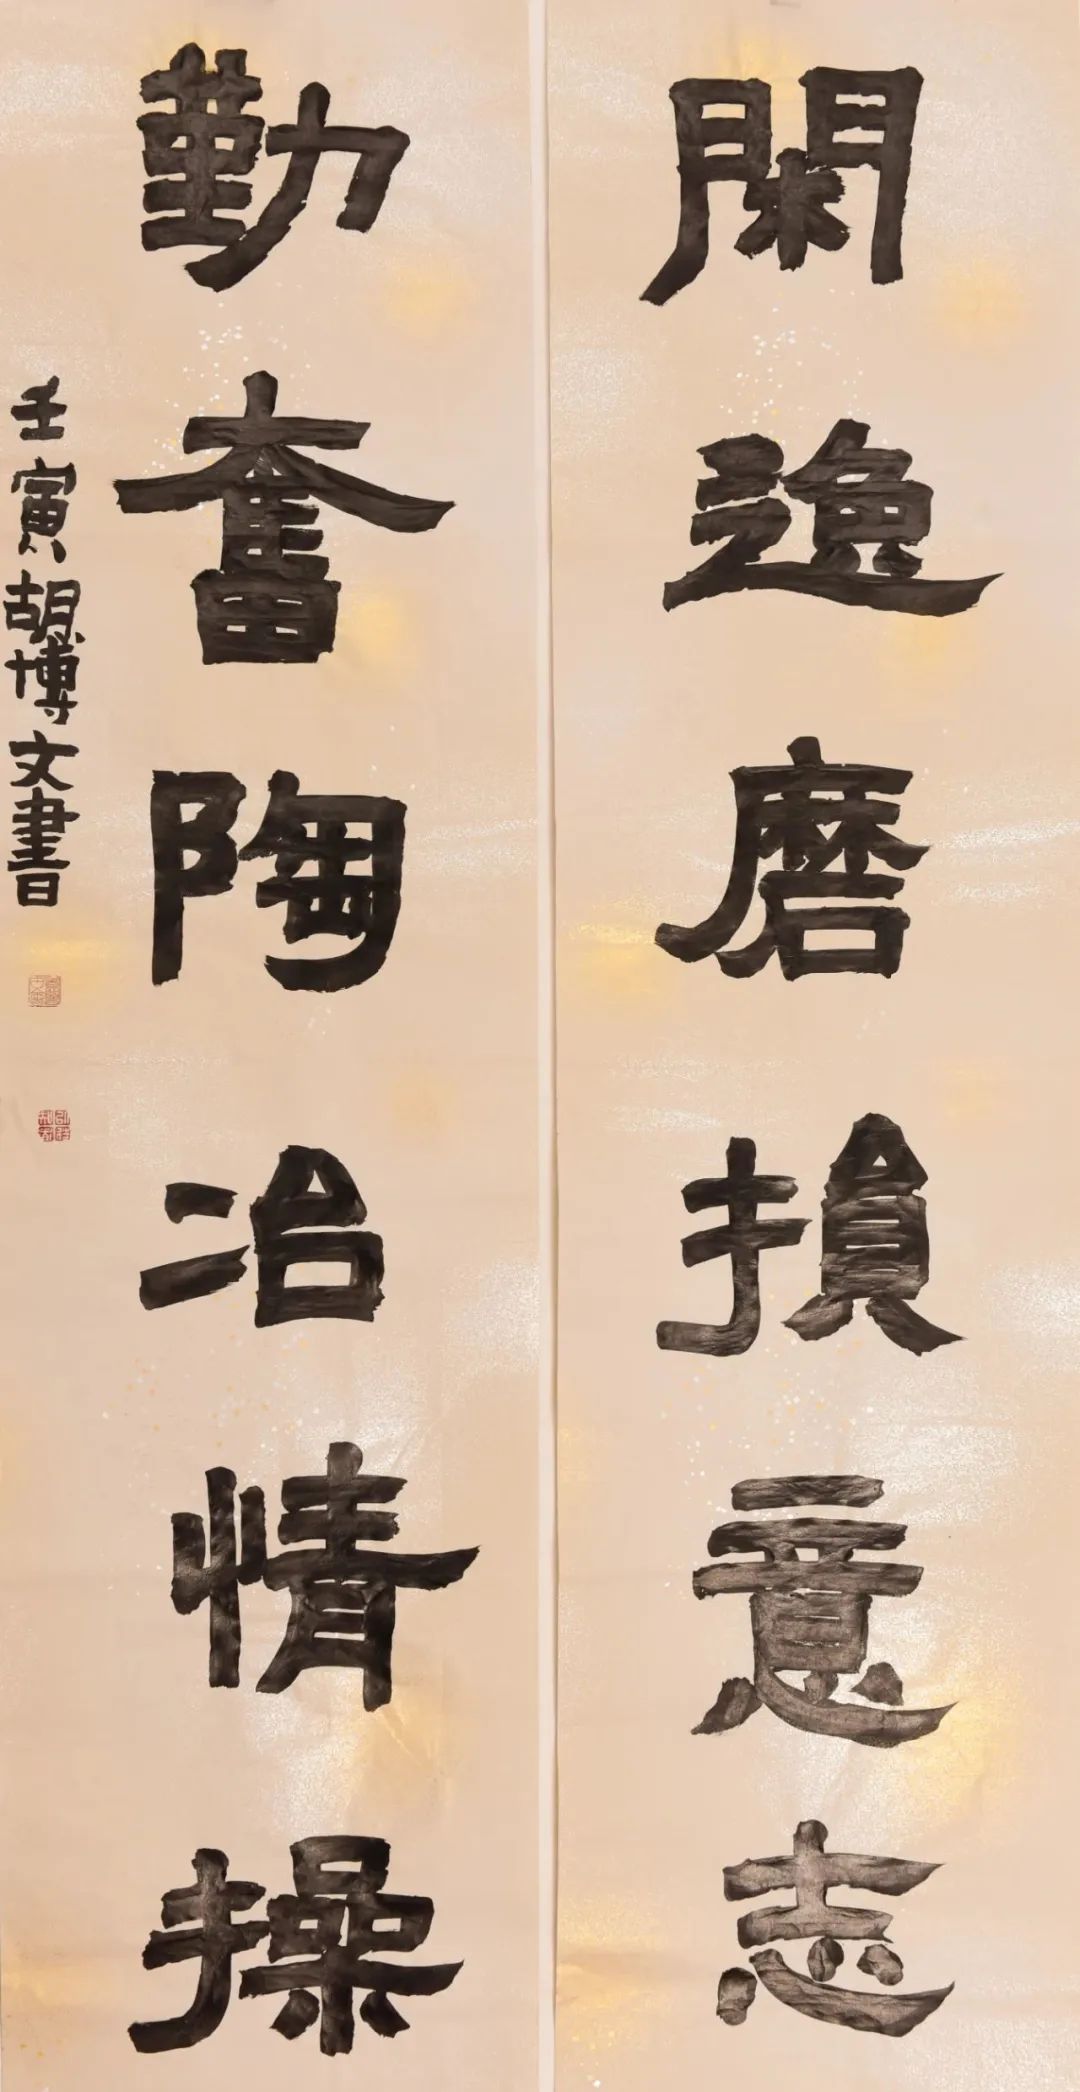 閑逸磨損意志
勤奮陶冶情操
壬寅胡博文書